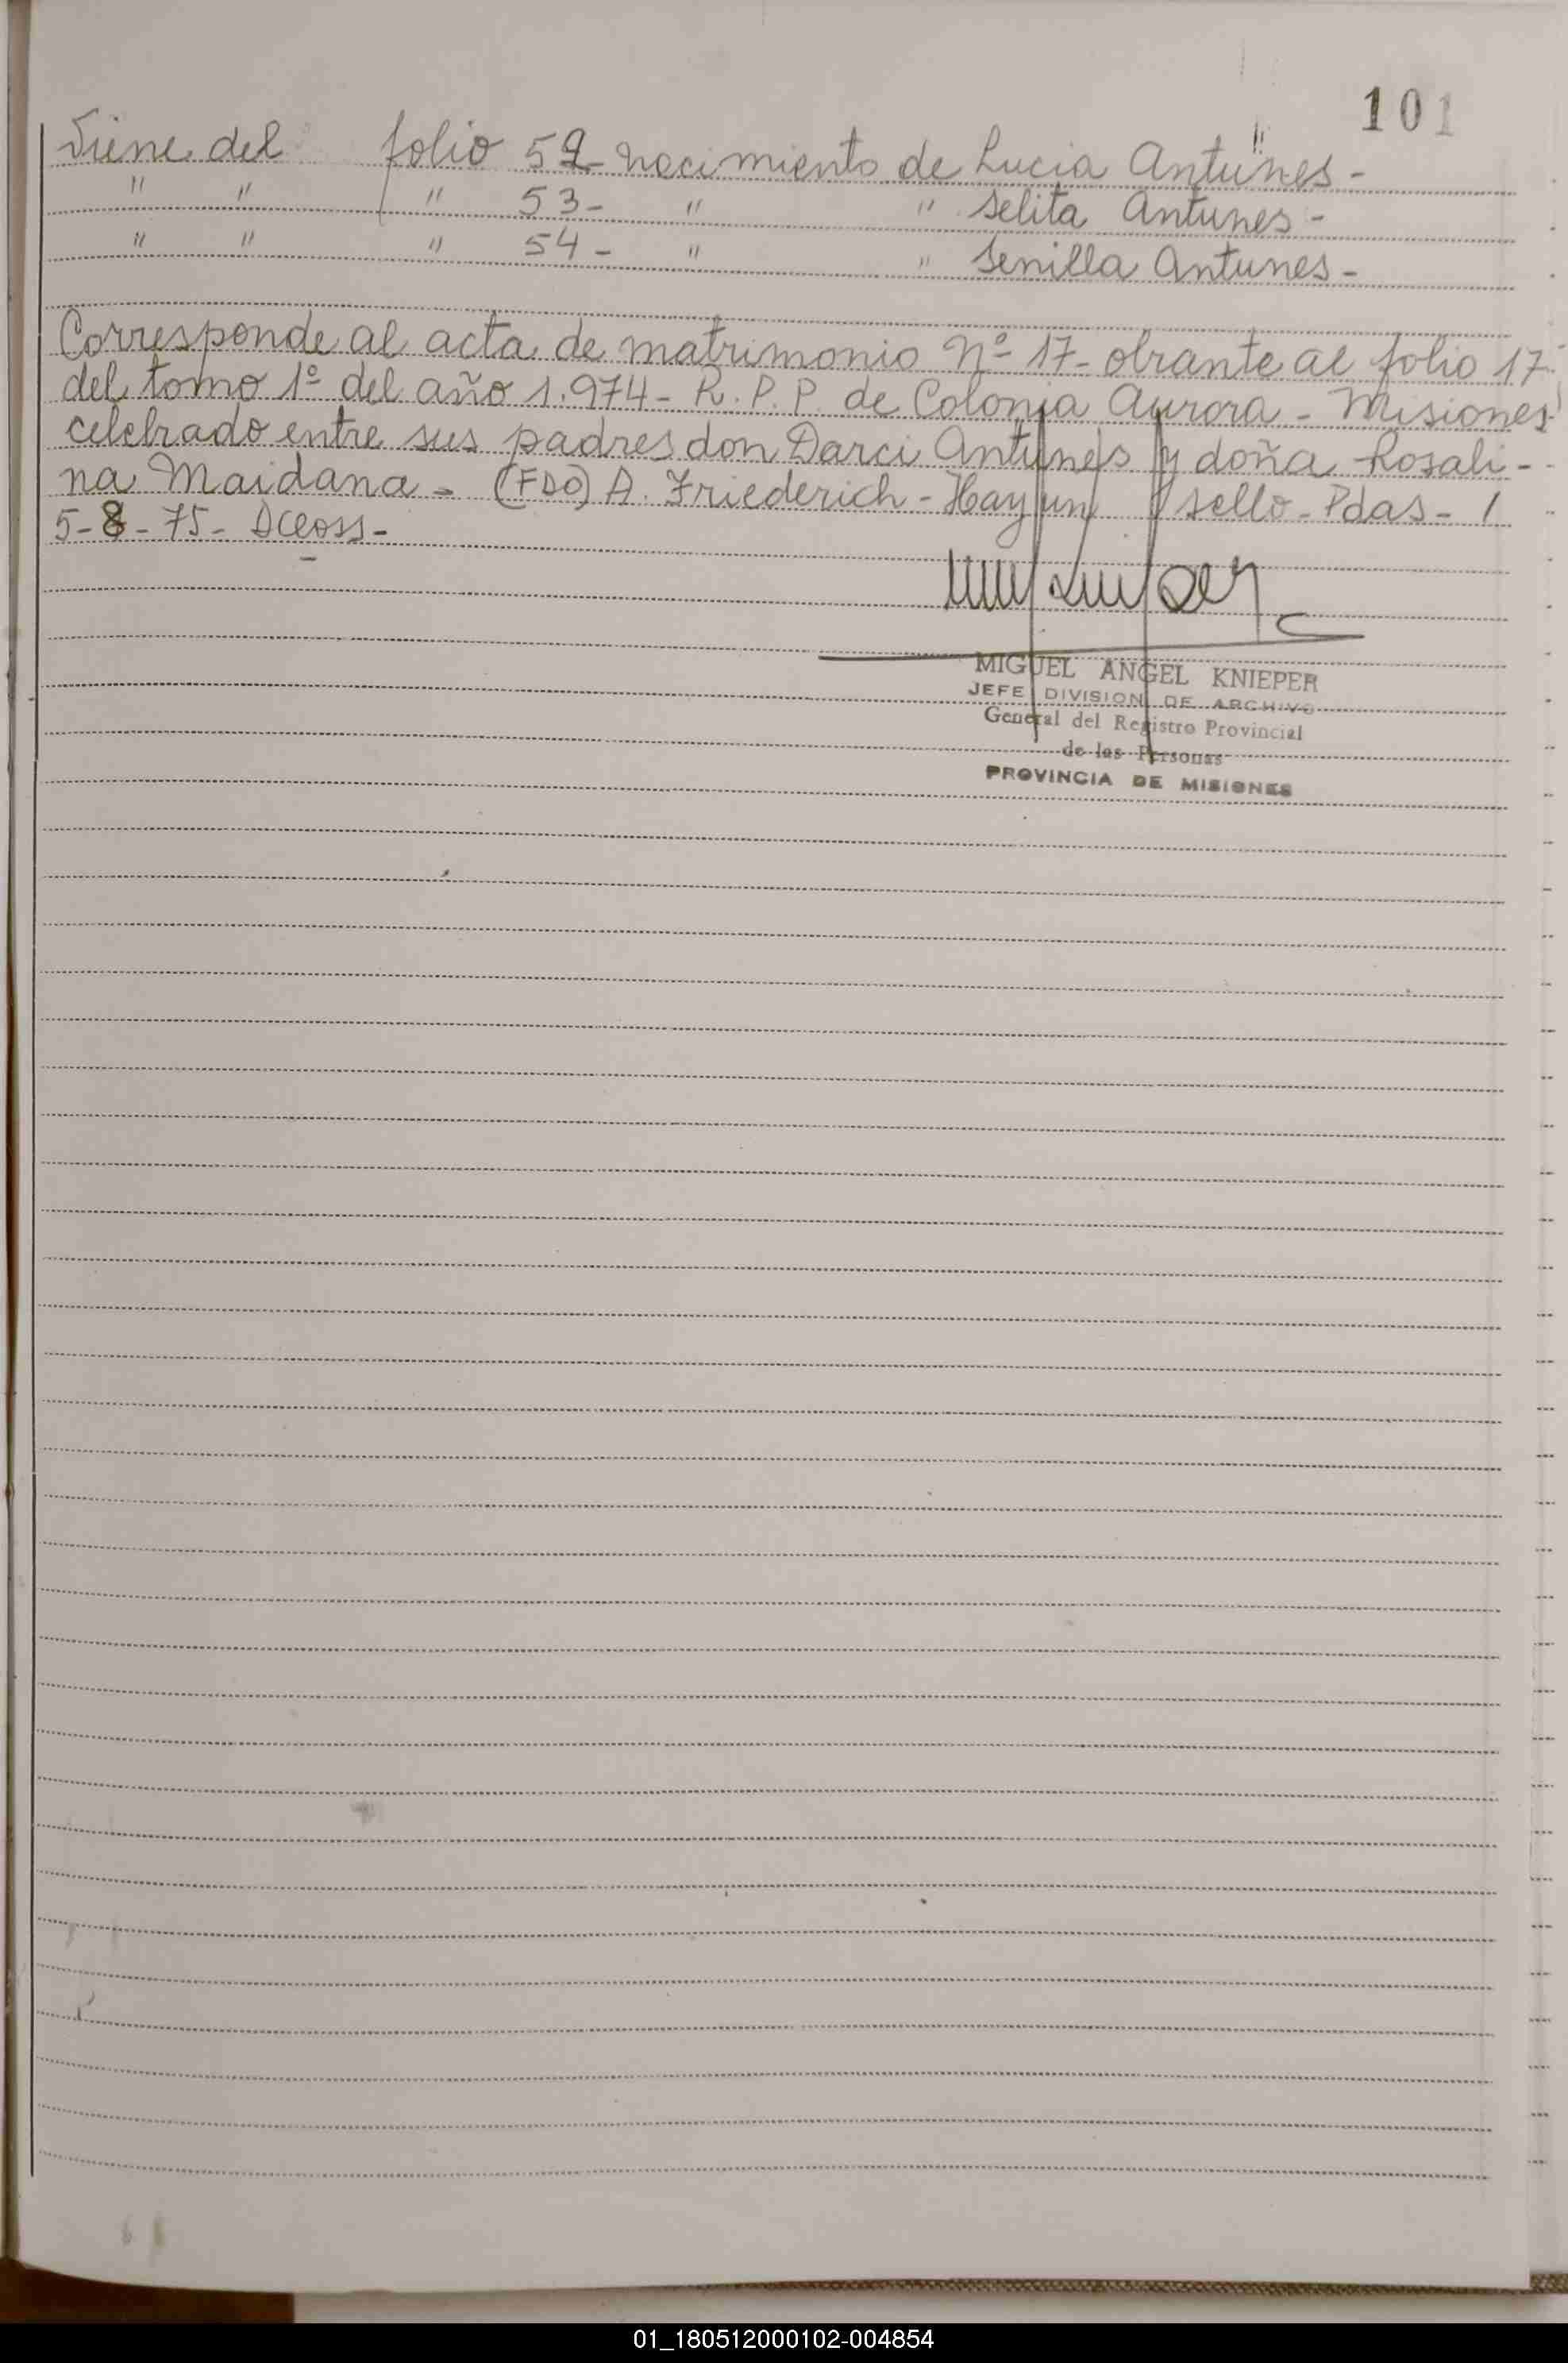 101
Viene del folio 52- nacimiento de Lucia Antunes-
" " " 53- " " Selita Antunes-
" " " 54- " " Senilla Antunes-
Corresponde al acta de matrimonio Nº 17- obrante al folio 17-
del tomo 1º del año 1.974- R.P.P. de Colonia Aurora- Misiones
celebrado entre sus padres don Darci Antunes y doña Rosali-
na Maidana- (FDO) A. Friederich- Hay un sello- Pdas- /
5-8-75-
MIGUEL ANGEL KNIEPER
JEFE DIVISION DE ARCHIVO
General del Registro Provincial
de las Personas
PROVINCIA DE MISIONES
01_180512000102-004854